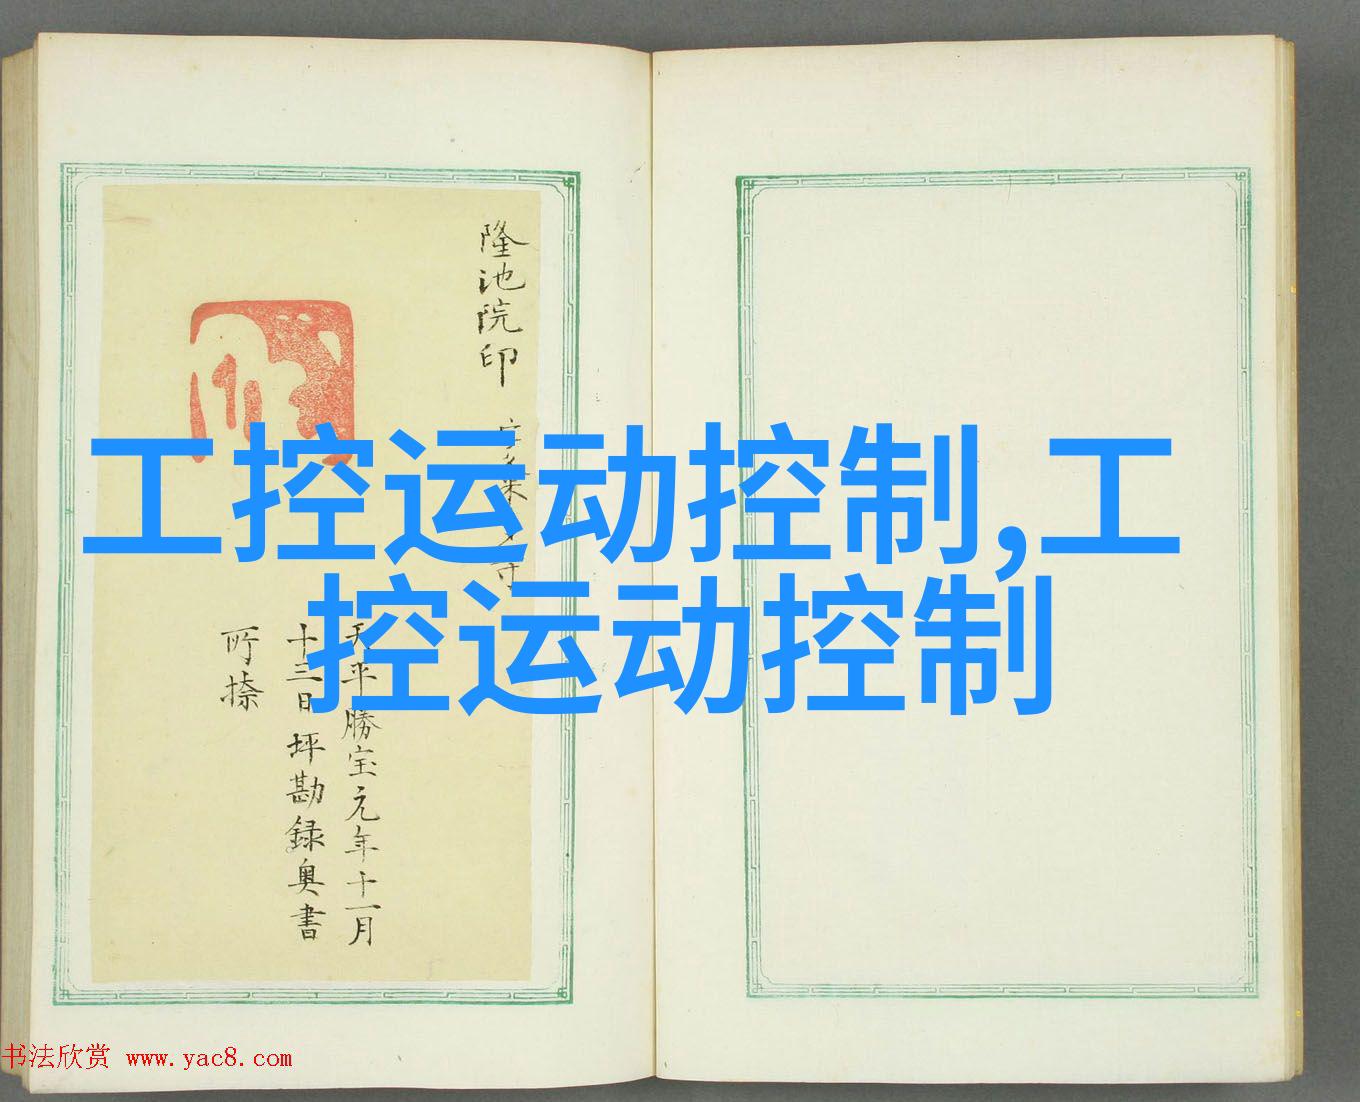 隆池院印
工控运动控制,工
控运动控制
天平勝宝元年十一月
十三日坪勘録奥書
所捺
书法欣赏 www.yac8.com